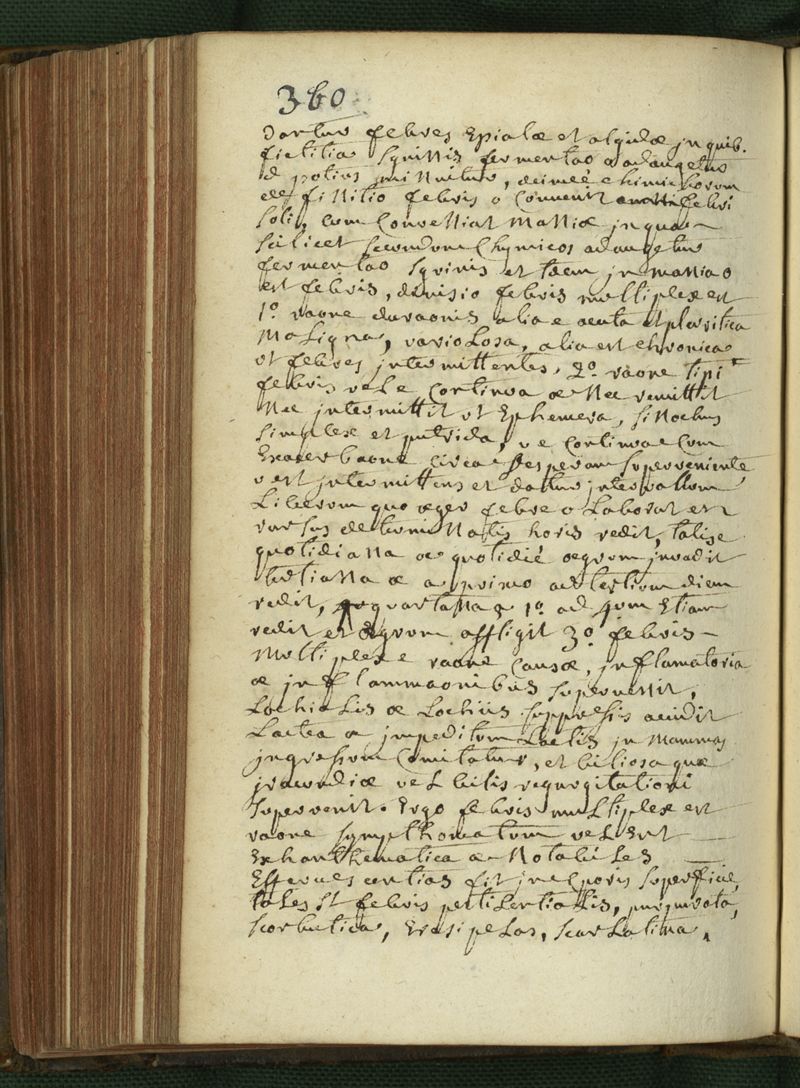 360
Dantur febres Epialæ et algidæ in quib.
fictitia sguinis fermentao o adaugetur
sed potius minuitur, deinde chimichorum
definitio febris o convenit omni febri
soli, cum conveniat maniæ in qua
scilicet secundum chymicos adaugetur
fermentao sguinis et tamen in mania o
est febris, divisio febris multiplex est
1º raone duraonis alia e acuta ut pleuritica
maligna, variolosa, alia est chronica
ut febres intermittentes, 2º raone tipi
febris vel e continua æ nec remittit
nec intermittit ut Ephemera, sinochus
simplex et putrida, v e continua cum
Exacerbaone circa vesperam superveniente
v est intermittens et datur intervallum
Liberum quo æger febre o Laborat et
rursus determinatis horis redit, talis e
quotidiana æ quotidié ægrum invadit
tertiana æ a primo ad tertium diem
redit, quartana a 1º ad 4um Etiam
redit et ægrum affligit 3º febris
Multiplex e raone causæ, inflamatoria
æ inflammaonibus supervenit,
Lochialis æ Lochiis suppressis accidit
Lactea æ impeditum Lactis in mammas
ingressum comitatur, et biliosa quæ
iracundiæ vel bilis regurgitationi
supervenit. Ergo febris multiplex est
raone sympthomatum vel Erit
Exhanthematica æ notabiles
Effervescentias fit in Cporis superficie,
tales st febris pestilentialis, purpurata,
scorbutica, Erasipelas, scarlatina,